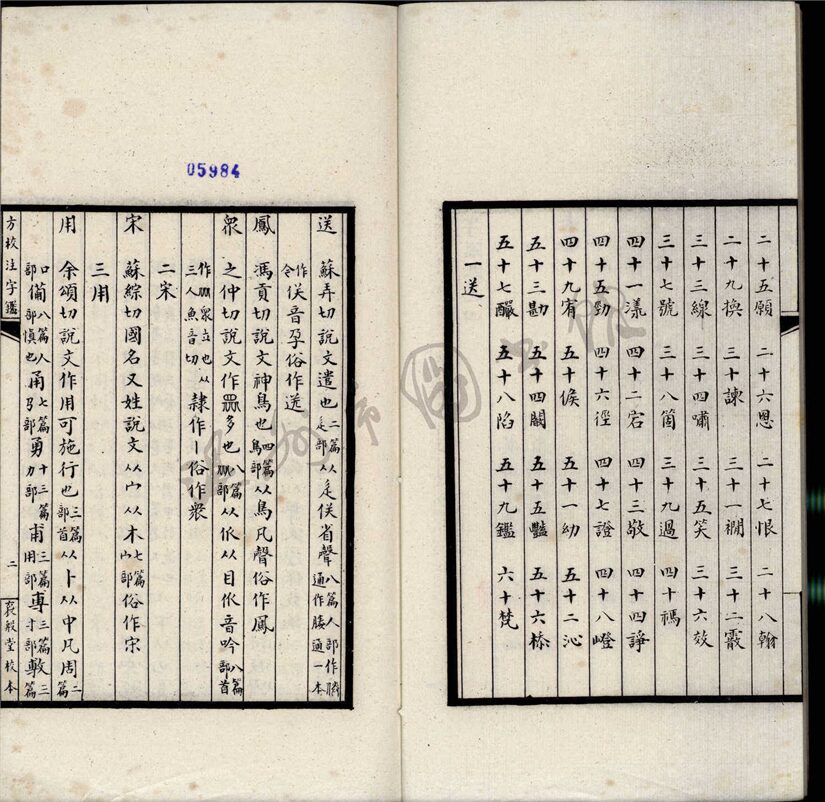 二十五願 二十六慁 二十七恨 二十八翰
二十九換 三十諫 三十一襉 三十二霰
三十三線 三十四嘯 三十五笑 三十六效
三十七號 三十八箇 三十九過 四十禡
四十一漾 四十二宕 四十三敬 四十四諍
四十五勁 四十六徑 四十七證 四十八嶝
四十九宥 五十候 五十一幼 五十二沁
五十三勘 五十四闞 五十五豔 五十六㮇
五十七釅 五十八陷 五十九鑑 六十梵
一送
05984
送 蘇弄切說文遣也二篇辵部从辵倴省聲八篇人部作𠊱通作媵通一本
作倴音孕俗作送
鳳 馮貢切說文神鳥也四篇鳥部从鳥凡聲俗作鳳
眾 之仲切說文作眾多也八篇㐺部从㐺从目㐺音吟八篇部首
作㐺眾立也从三人魚音切隸作丨俗作衆
二宋
宋 蘇綜切國名又姓說文从宀从木七篇宀部俗作宋
三用
用 余頌切說文作用可施行也三篇部首从卜从中凡周二篇
口部僃八篇人部慎也甬七篇𢎘部勇十三篇力部甫三篇用部專三篇寸部敷三篇
方校注字鑑
二
裒殷堂校本